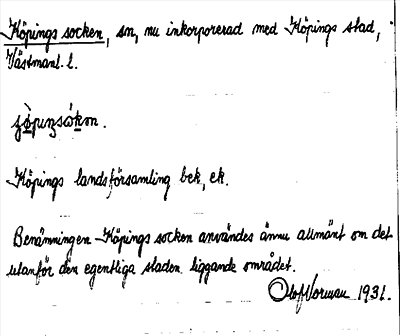 Köpings socken, sn, nu inkorporerad med Köpings stad,
Västmanl. l.
Köpings landsförsamling bek, ek.
Benämningen Köpings socken användes ännu allmänt om det
utanför den egentliga staden liggande området.
Olof 1931.